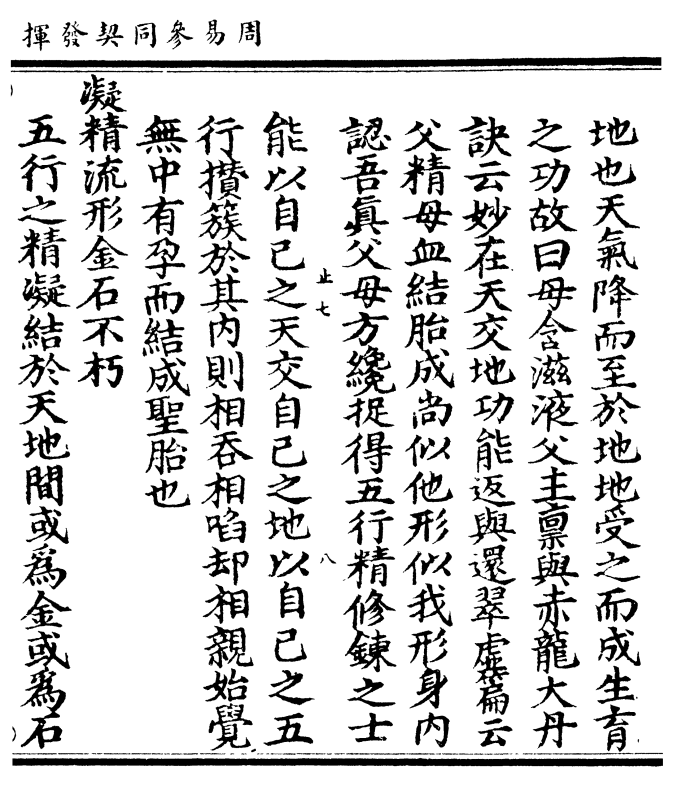 周易參同契發揮
地也天氣降而至於地地受之而成生育
之功故曰母含滋液父主稟與赤龍大丹
訣云妙在天交地功能返與還翠虛篇云
父精母血結胎成尚似他形似我形身内
認吾眞父母方纔捉得五行精修鍊之士
止七
八
能以自己之天交自己之地以自己之五
行攢簇於其内則相吞相啗却相親始覺
無中有孕而結成聖胎也
凝精流形金石不朽
五行之精凝結於天地間或爲金或爲石